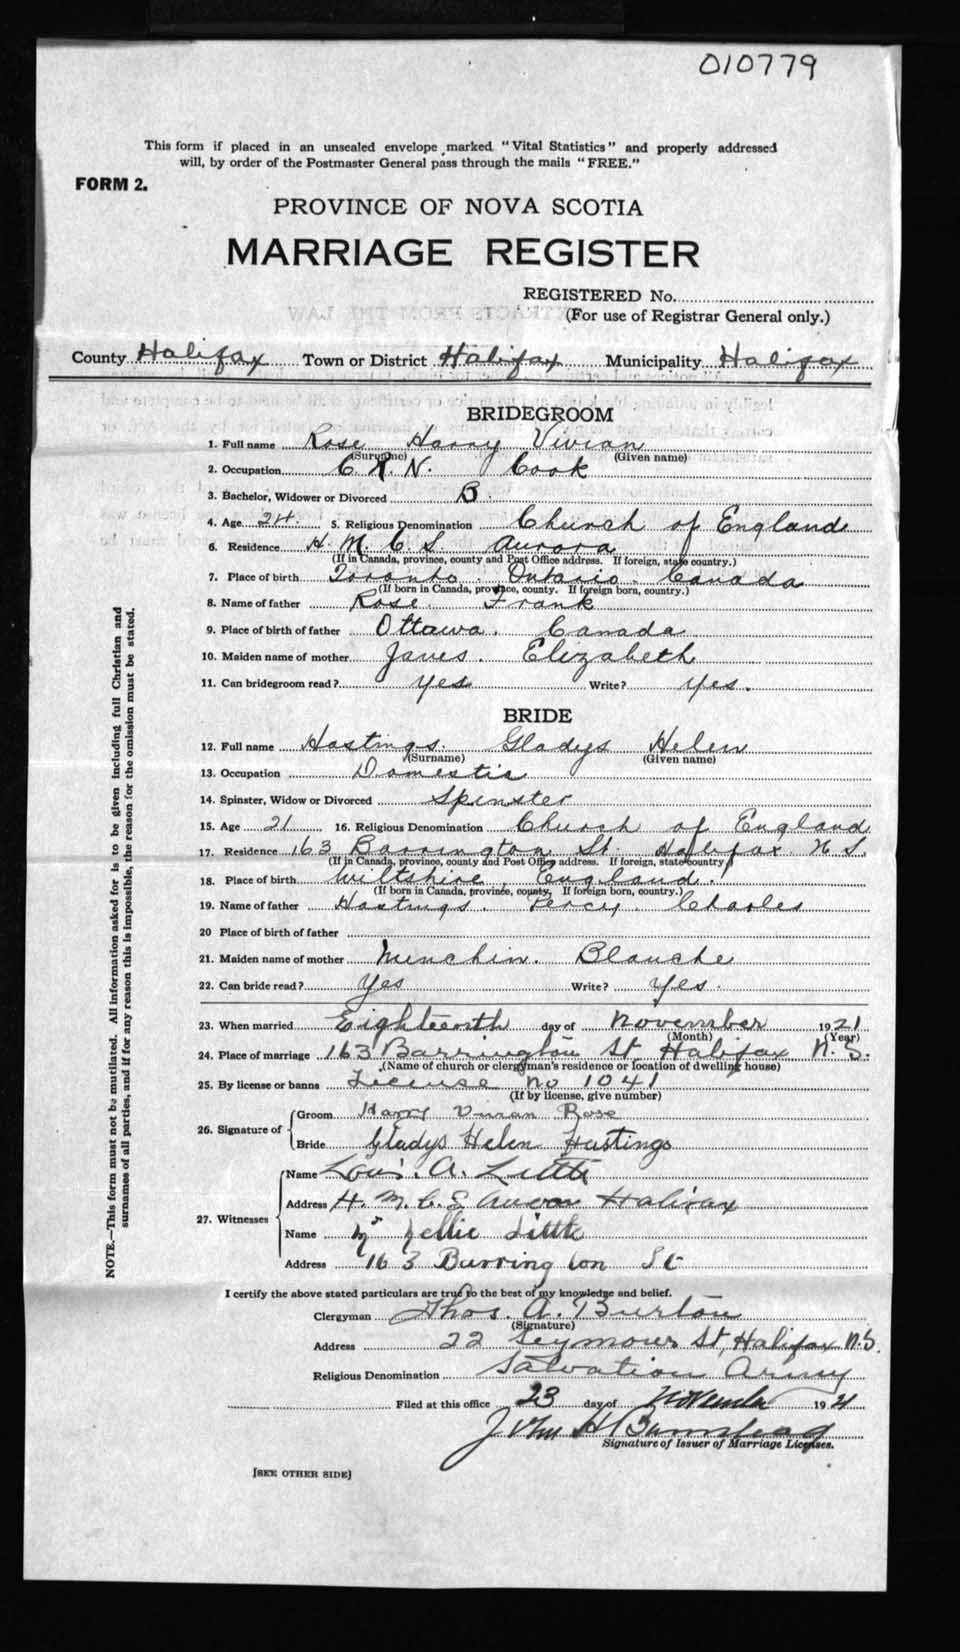 010779
This form if placed in an unsealed envelope marked "Vital Statistics" and properly addressed
will, by order of the Postmaster General pass through the mails "FREE."
FORM 2.
PROVINCE OF NOVA SCOTIA
MARRIAGE REGISTER
REGISTERED No.
(For use of Registrar General only.)
County Halifax Town or District Halifax Municipality Halifax
BRIDEGROOM
1. Full name Rose Harry Vivian
(Surname) (Given name)
2. Occupation C.R.N. Cook
3. Bachelor, Widower or Divorced B.
4. Age 24. 5. Religious Denomination Church of England
6. Residence H.M.C.S. Aurora
(If in Canada, province, county and Post Office address. If foreign, state country.)
7. Place of birth Toronto. Ontario. Canada
(If born in Canada, province, county. If foreign born, country.)
8. Name of father Rose. Frank
9. Place of birth of father Ottawa. Canada
10. Maiden name of mother Elizabeth
11. Can bridegroom read? yes Write? yes.
BRIDE
12. Full name Hastings. Gladys Helen
(Surname) (Given name)
13. Occupation Domestic
14. Spinster, Widow or Divorced Spinster
15. Age 21 16. Religious Denomination Church of England
17. Residence 163 Barrington St. Halifax N.S.
(If in Canada, province, county and Post Office address. If foreign, state country.)
18. Place of birth Wiltshire, England.
(If born in Canada, province, county. If foreign born, country.)
19. Name of father Hastings. Percy. Charles
20 Place of birth of father
21. Maiden name of mother Minchin. Blanche
22. Can bride read? Yes Write? Yes.
23. When married Eighteenth day of November 1921
(Month) (Year)
24. Place of marriage 163 Barrington St Halifax N.S.
(Name of church or clergyman's residence or location of dwelling house)
25. By license or banns License no 1041
(If by license, give number)
26. Signature of Groom Harry Vivian Rose
Bride Gladys Helen Hastings
27. Witnesses
Name Louis. A. Little
Address H.M.C.S Aurora Halifax
Name Nellie Little
Address 163 Burrington St
I certify the above stated particulars are true to the best of my knowledge and belief.
Clergyman Thos. A. Burton
(Signature)
Address 22 Seymour St, Halifax N.S.
Religious Denomination Salvation Army
Filed at this office 23 day of November 1921
John H
Signature of Issuer of Marriage Licenses.
[SEE OTHER SIDE]
NOTE.—This form must not be mutilated. All information asked for is to be given including full Christian and
surnames of all parties, and if for any reason this is impossible, the reason for the omission must be stated.